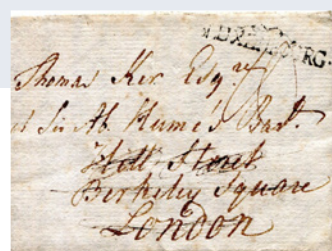 Thomas Ker Esqr.
at Sir Ab. Hume's Bart.
Hill Street
Berkeley Square
London